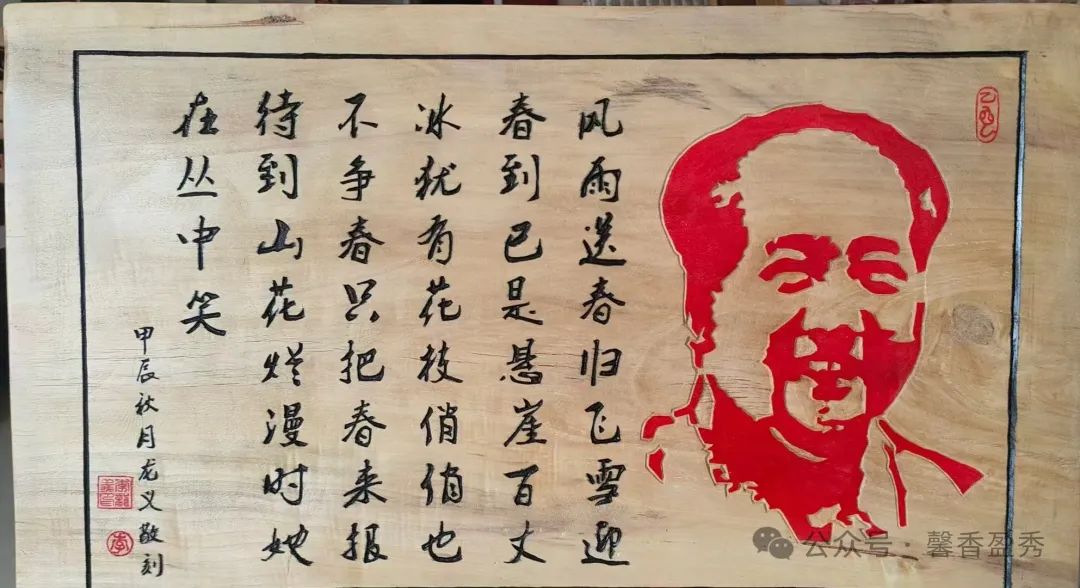 风雨送春归飞雪迎
春到已是悬崖百丈
冰犹有花枝俏俏也
不争春只把春来报
待到山花烂漫时她
在丛中笑
甲辰秋月龙义敬刻
李
公众号·馨香盈秀